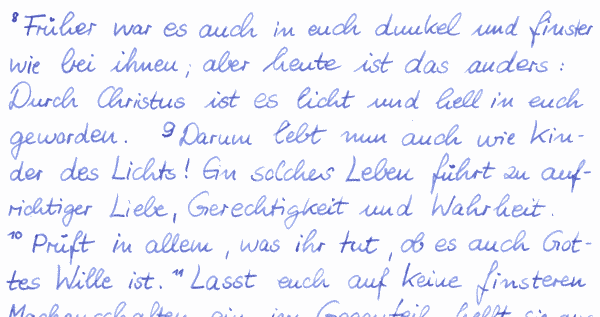 ⁸ Früher war es auch in euch dunkel und finster
wie bei ihnen, aber heute ist das anders:
Durch Christus ist es licht und hell in euch
geworden. ⁹ Darum lebt nun auch wie Kin-
der des Lichts! Ein solches Leben führt zu auf-
richtiger Liebe, Gerechtigkeit und Wahrheit.
¹⁰ Prüft in allem, was ihr tut, ob es auch Got-
tes Wille ist. ¹¹ Lasst euch auf keine finsteren
Machenschaften ein, im Gegenteil, helft sie